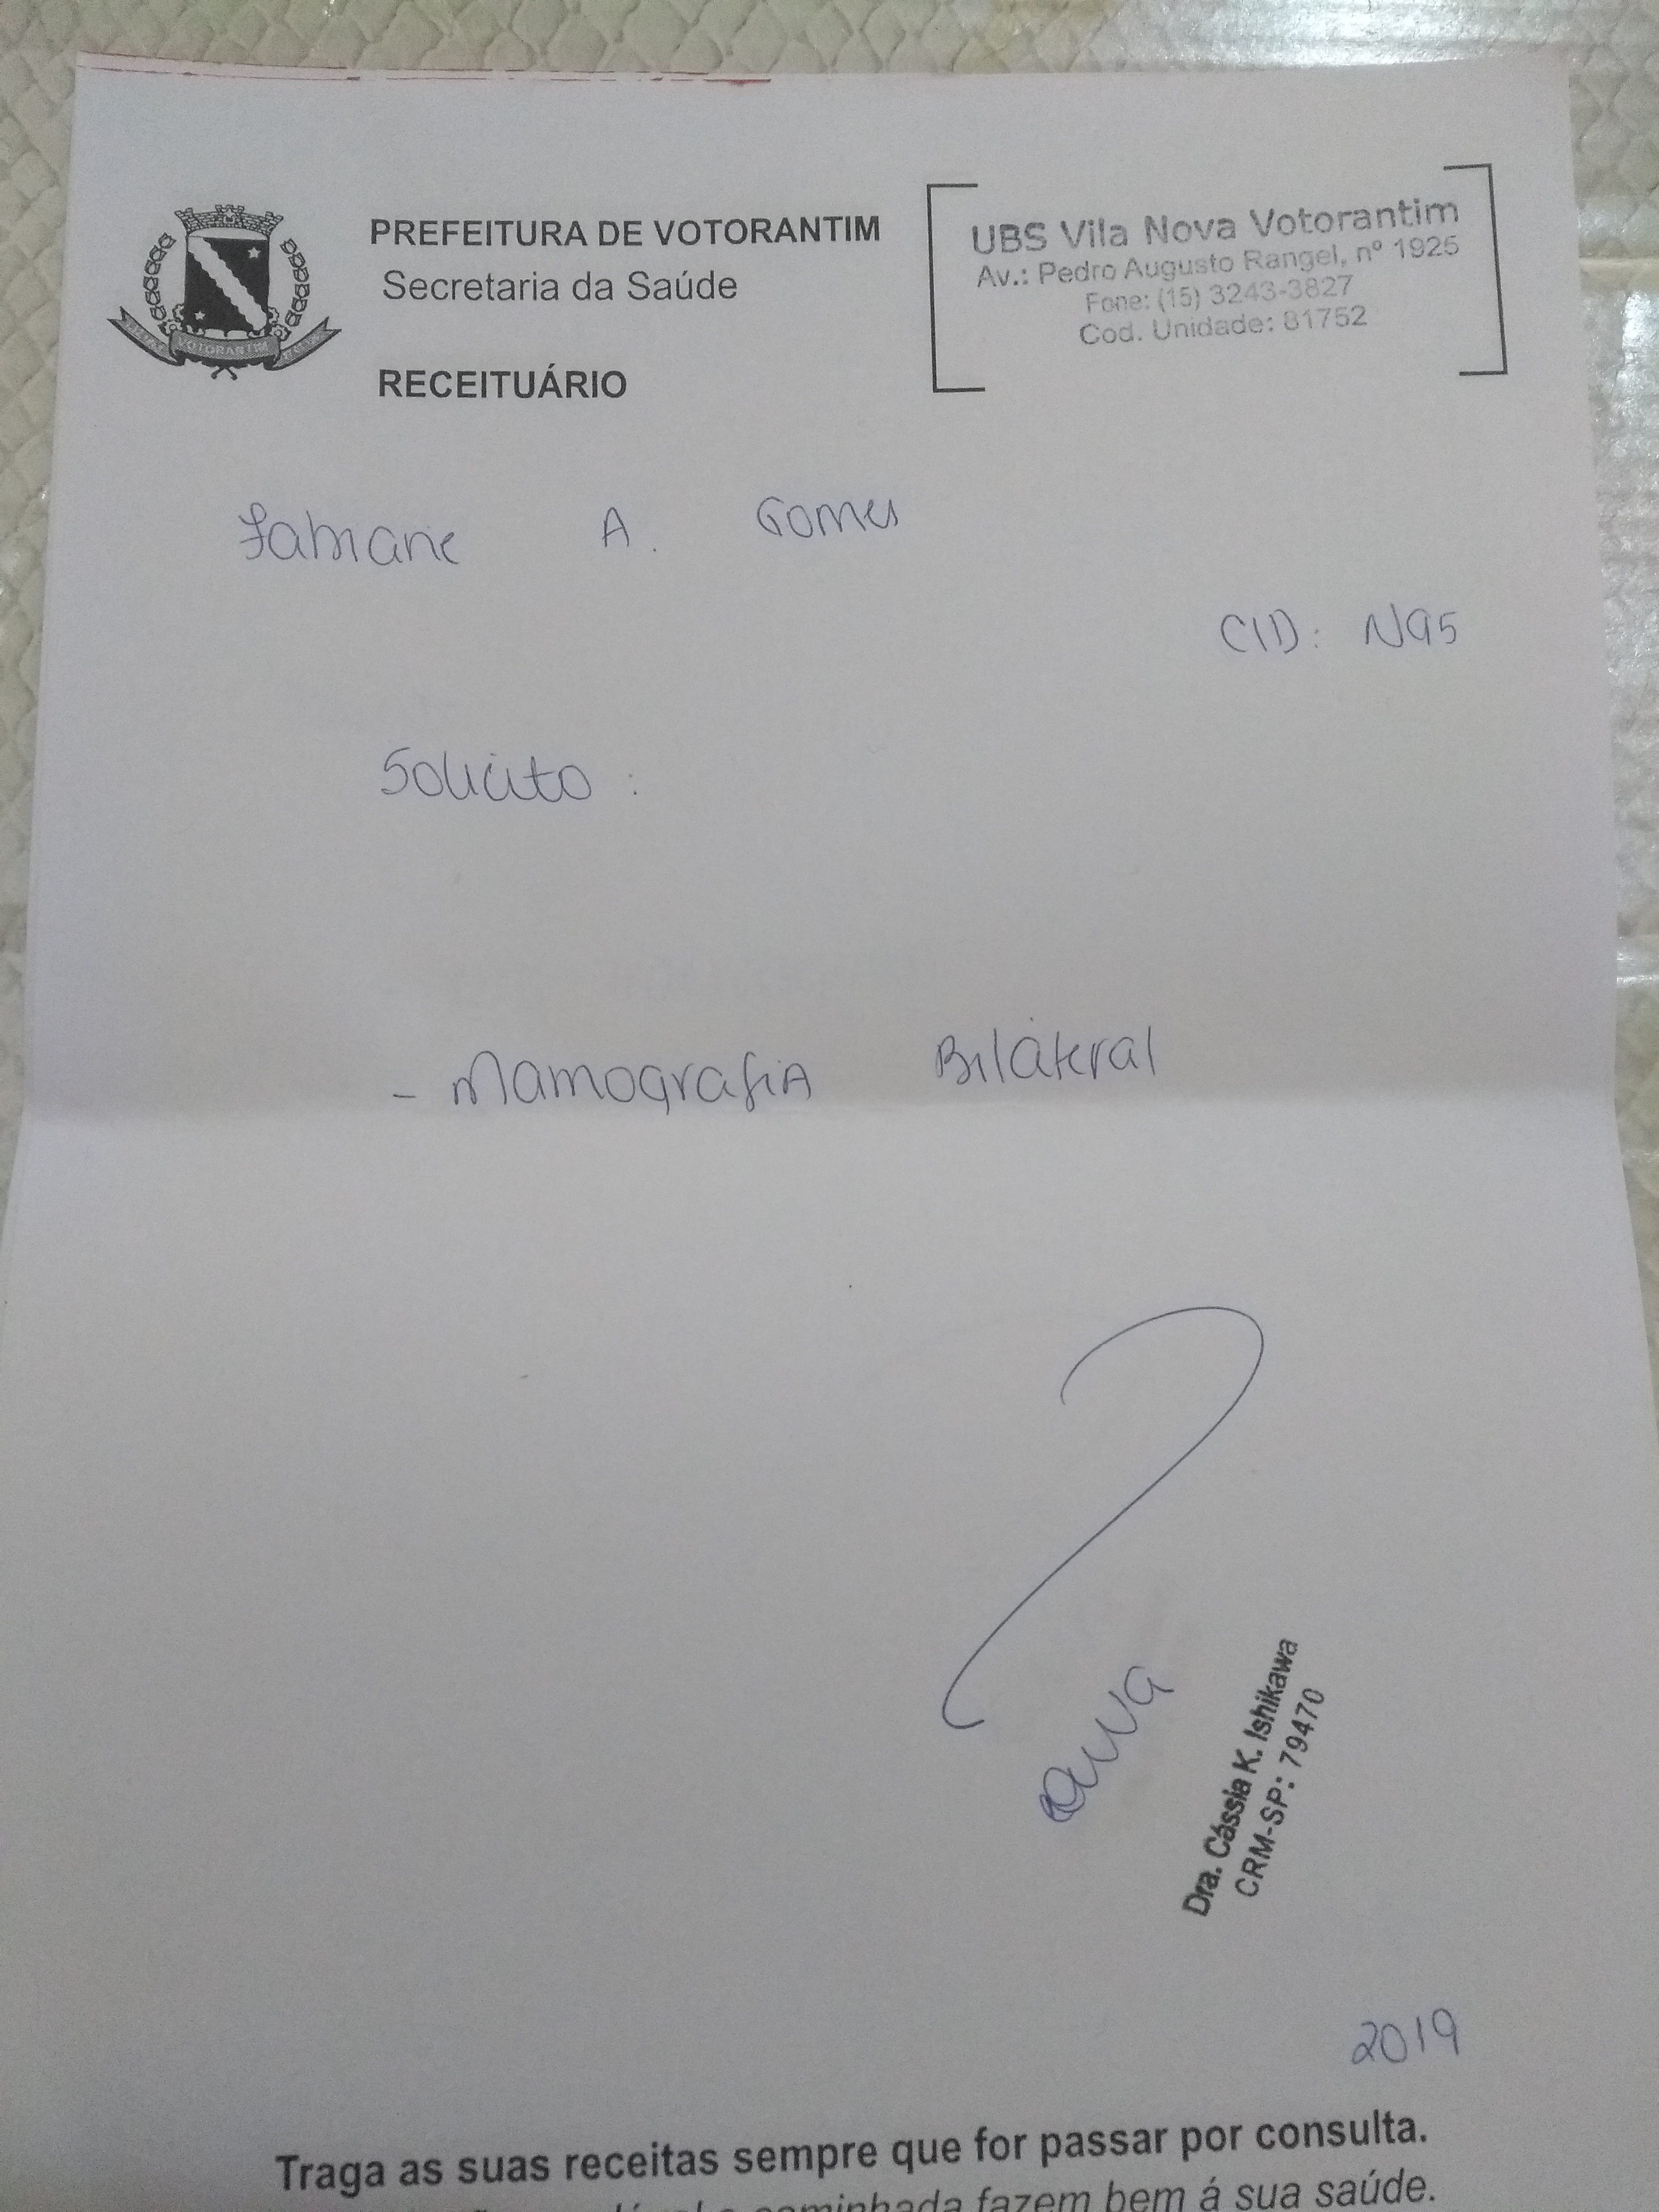 PREFEITURA DE VOTORANTIM
Secretaria da Saúde
RECEITUÁRIO
VOTORANTIM
UBS Vila Nova Votorantim
Av.: Pedro Augusto Rangel, nº 1925
Fone: (15) 3243-3827
Cod. Unidade: 81752
Fabiane A. Gomes
CID: N95
Solicito :
- Mamografia Bilateral
Dra. Cássia K. Ishikawa
CRM-SP: 79470
2019
Traga as suas receitas sempre que for passar por consulta.
caminhada fazem bem á sua saúde.